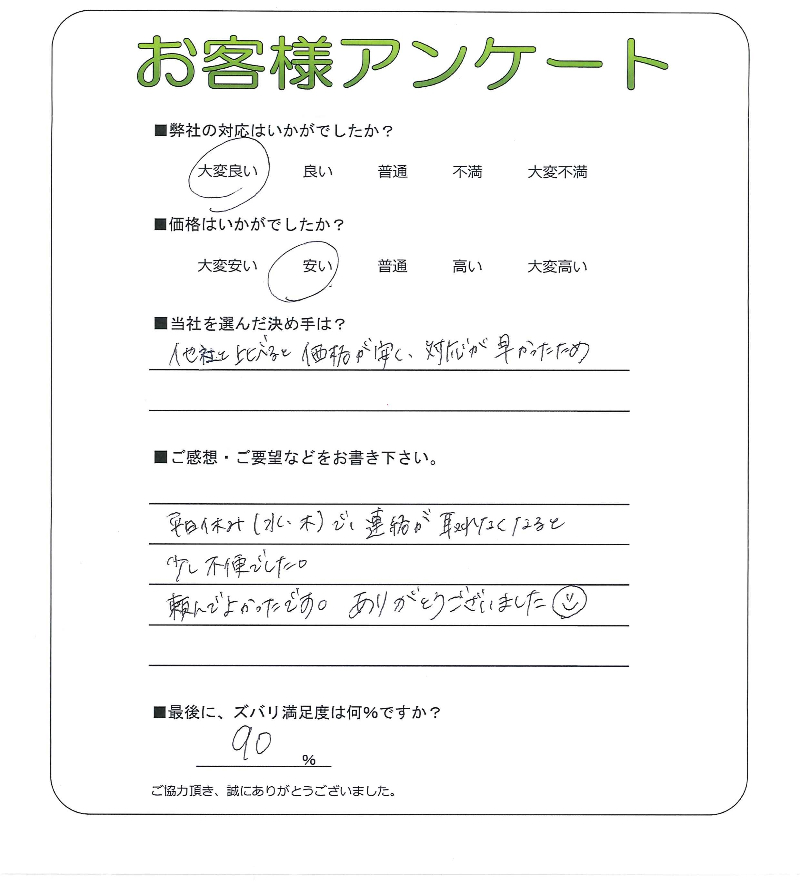 お客様アンケート
■弊社の対応はいかがでしたか？
大変良い 良い 普通 不満 大変不満
■価格はいかがでしたか？
大変安い 安い 普通 高い 大変高い
■当社を選んだ決め手は？
他社と比べると価格が安く、対応が早かったため
■ご感想・ご要望などをお書き下さい。
平日休み(水、木)で、連絡が取れなくなると
少し不便でした。
頼んでよかったです。 ありがとうございました
■最後に、ズバリ満足度は何％ですか？
90 %
ご協力頂き、誠にありがとうございました。